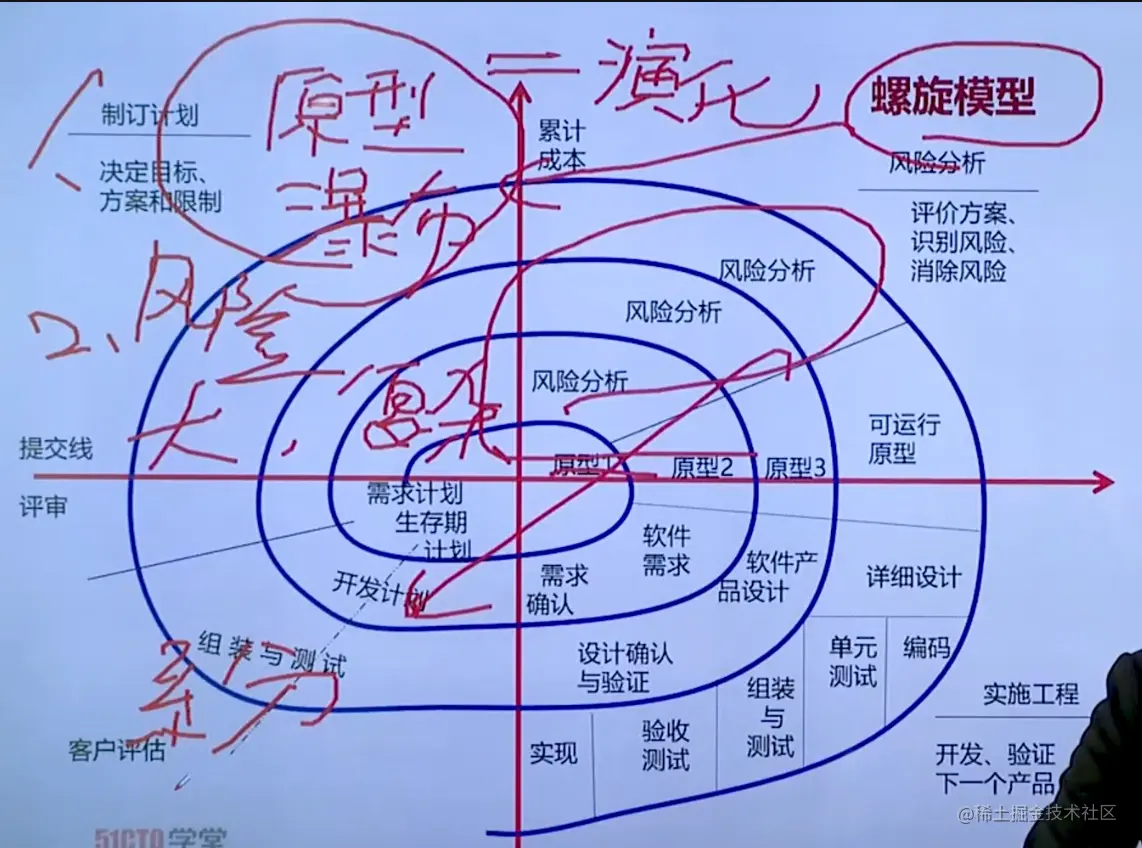 原型
⇌ 演化
螺旋模型
瀑布
2、风险
大,
系分
制订计划
决定目标、
方案和限制
累计
成本
风险分析
评价方案、
识别风险、
消除风险
风险分析
风险分析
风险分析
提交线
评审
原型1
原型2
原型3
可运行
原型
需求计划
生存期
计划
开发计划
组装与测试
客户评估
需求
确认
软件
需求
软件产
品设计
详细设计
设计确认
与验证
单元
测试
编码
组装
与
测试
验收
测试
实现
实施工程
开发、验证
下一个产品
51CTO学堂
@稀土掘金技术社区